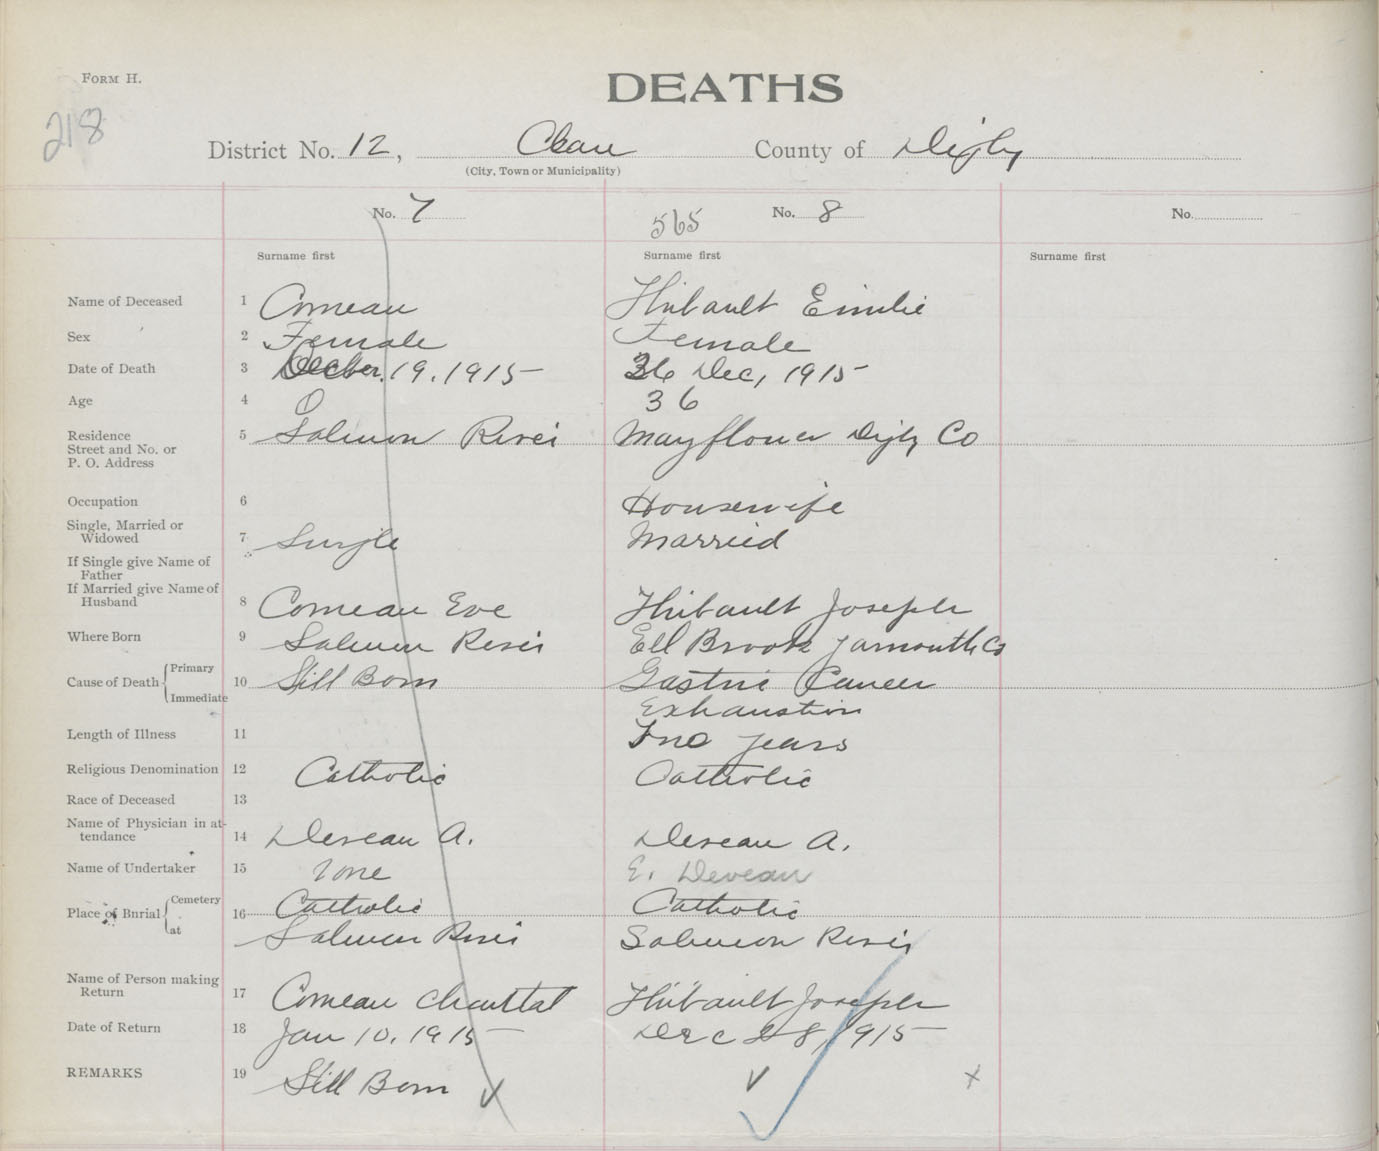 FORM H.
DEATHS
218
District No. 12, Clare County of Digby
(City, Town or Municipality)
No. 7 565 No. 8 No.
Surname first Surname first Surname first
Name of Deceased 1 Comeau Thibault Emilie
Sex 2 Female Female
Date of Death 3 19, 1915 26 Dec, 1915
Age 4 0 36
Residence 5 Salmon River Mayflower Digby Co
Street and No. or
P. O. Address
Occupation 6 Housewife
Single, Married or
Widowed 7 Single Married
If Single give Name of
Father
If Married give Name of
Husband 8 Comeau Eve Thibault Joseph
Where Born 9 Salmon River Ell Brook Yarmouth Co
Cause of Death { Primary
Immediate 10 Still Born Gastric Cancer
Exhaustion
Length of Illness 11 Two years
Religious Denomination 12 Catholic Catholic
Race of Deceased 13
Name of Physician in at-
tendance 14 Deveau A. Deveau A.
Name of Undertaker 15 none E. Deveau
Place of Burial { Cemetery
at 16 Catholic Catholic
Salmon River Salmon River
Name of Person making
Return 17 Comeau Thibault Joseph
Date of Return 18 Jan 10, 1915 Dec 28, 1915
REMARKS 19 Still Born